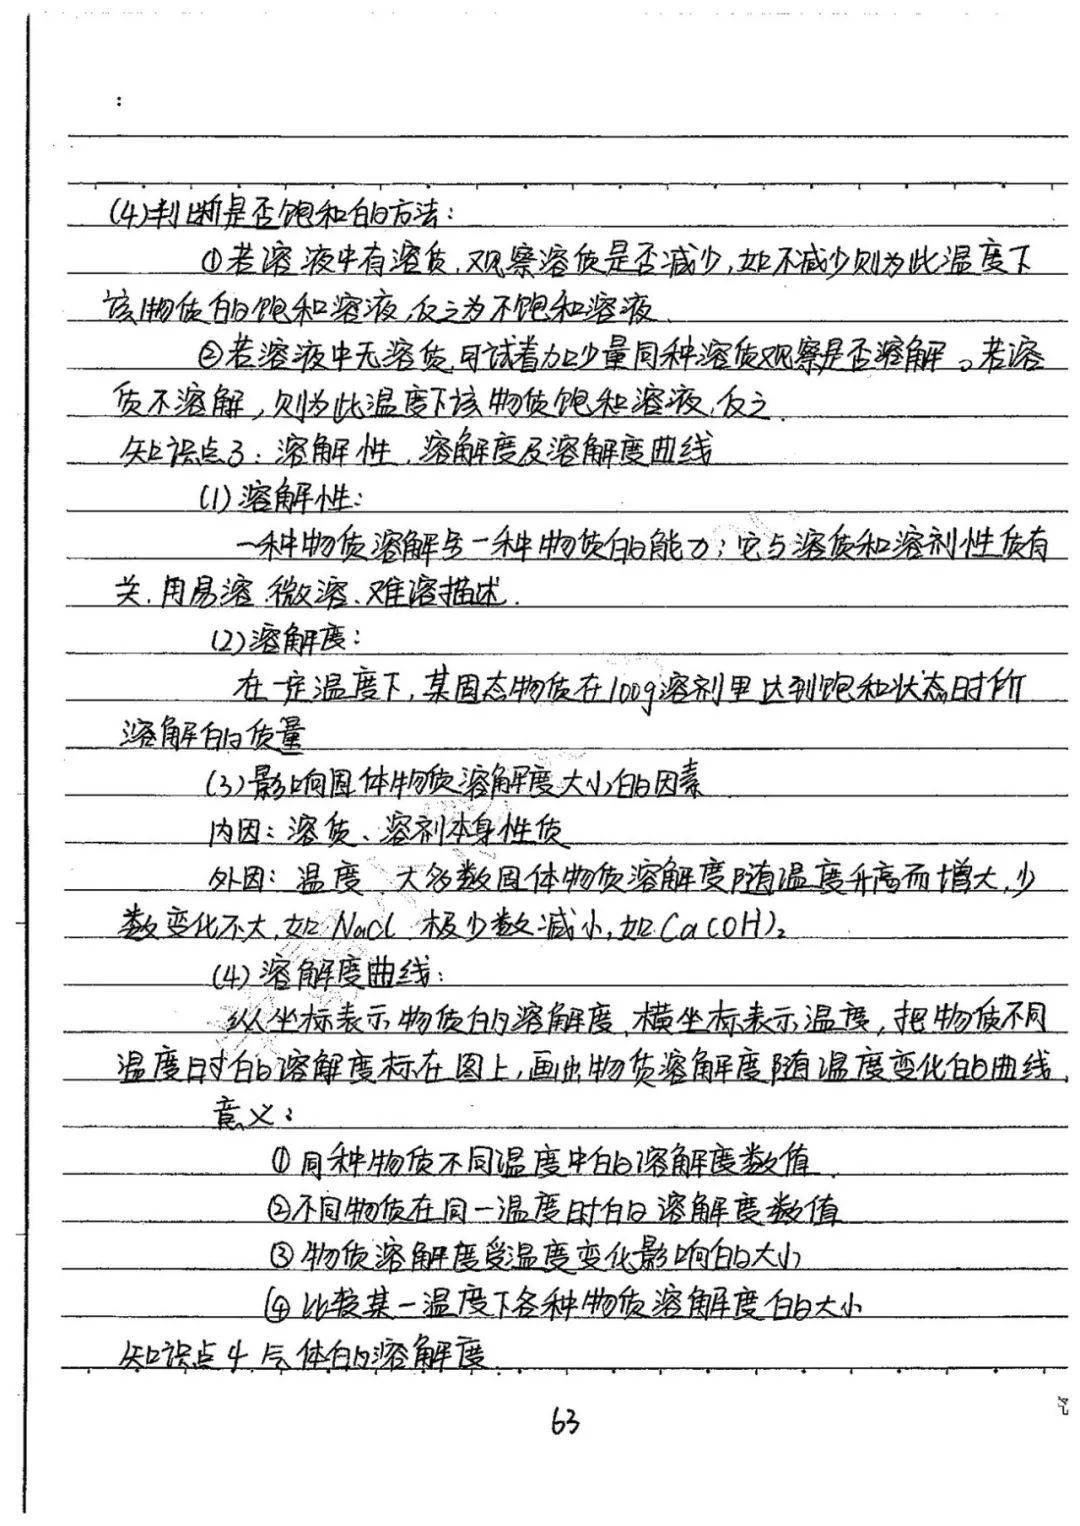 :
(4)判断是否饱和的方法:
①若溶液中有溶质,观察溶质是否减少,如不减少则为此温度下
该物质的饱和溶液,反之为不饱和溶液
②若溶液中无溶质,可试着加少量同种溶质观察是否溶解。若溶
质不溶解,则为此温度下该物质饱和溶液,反之.
知识点3:溶解性,溶解度及溶解度曲线
(1)溶解性:
一种物质溶解另一种物质的能力;它与溶质和溶剂性质有
关.用易溶.微溶、难溶描述.
(2)溶解度:
在一定温度下,某固态物质在100g溶剂里达到饱和状态时所
溶解的质量
(3)影响固体物质溶解度大小的因素
内因:溶质、溶剂本身性质
外因:温度.大多数固体物质溶解度随温度升高而增大,少
数变化不大,如NaCl.极少数减小,如Ca(OH)₂
(4)溶解度曲线:
纵坐标表示物质的溶解度,横坐标表示温度,把物质不同
温度时的溶解度标在图上,画出物质溶解度随温度变化的曲线.
意义:
①同种物质不同温度中的溶解度数值
②不同物质在同一温度时的溶解度数值
③物质溶解度受温度变化影响的大小
④比较某一温度下各种物质溶解度的大小
知识点4 气体的溶解度
63